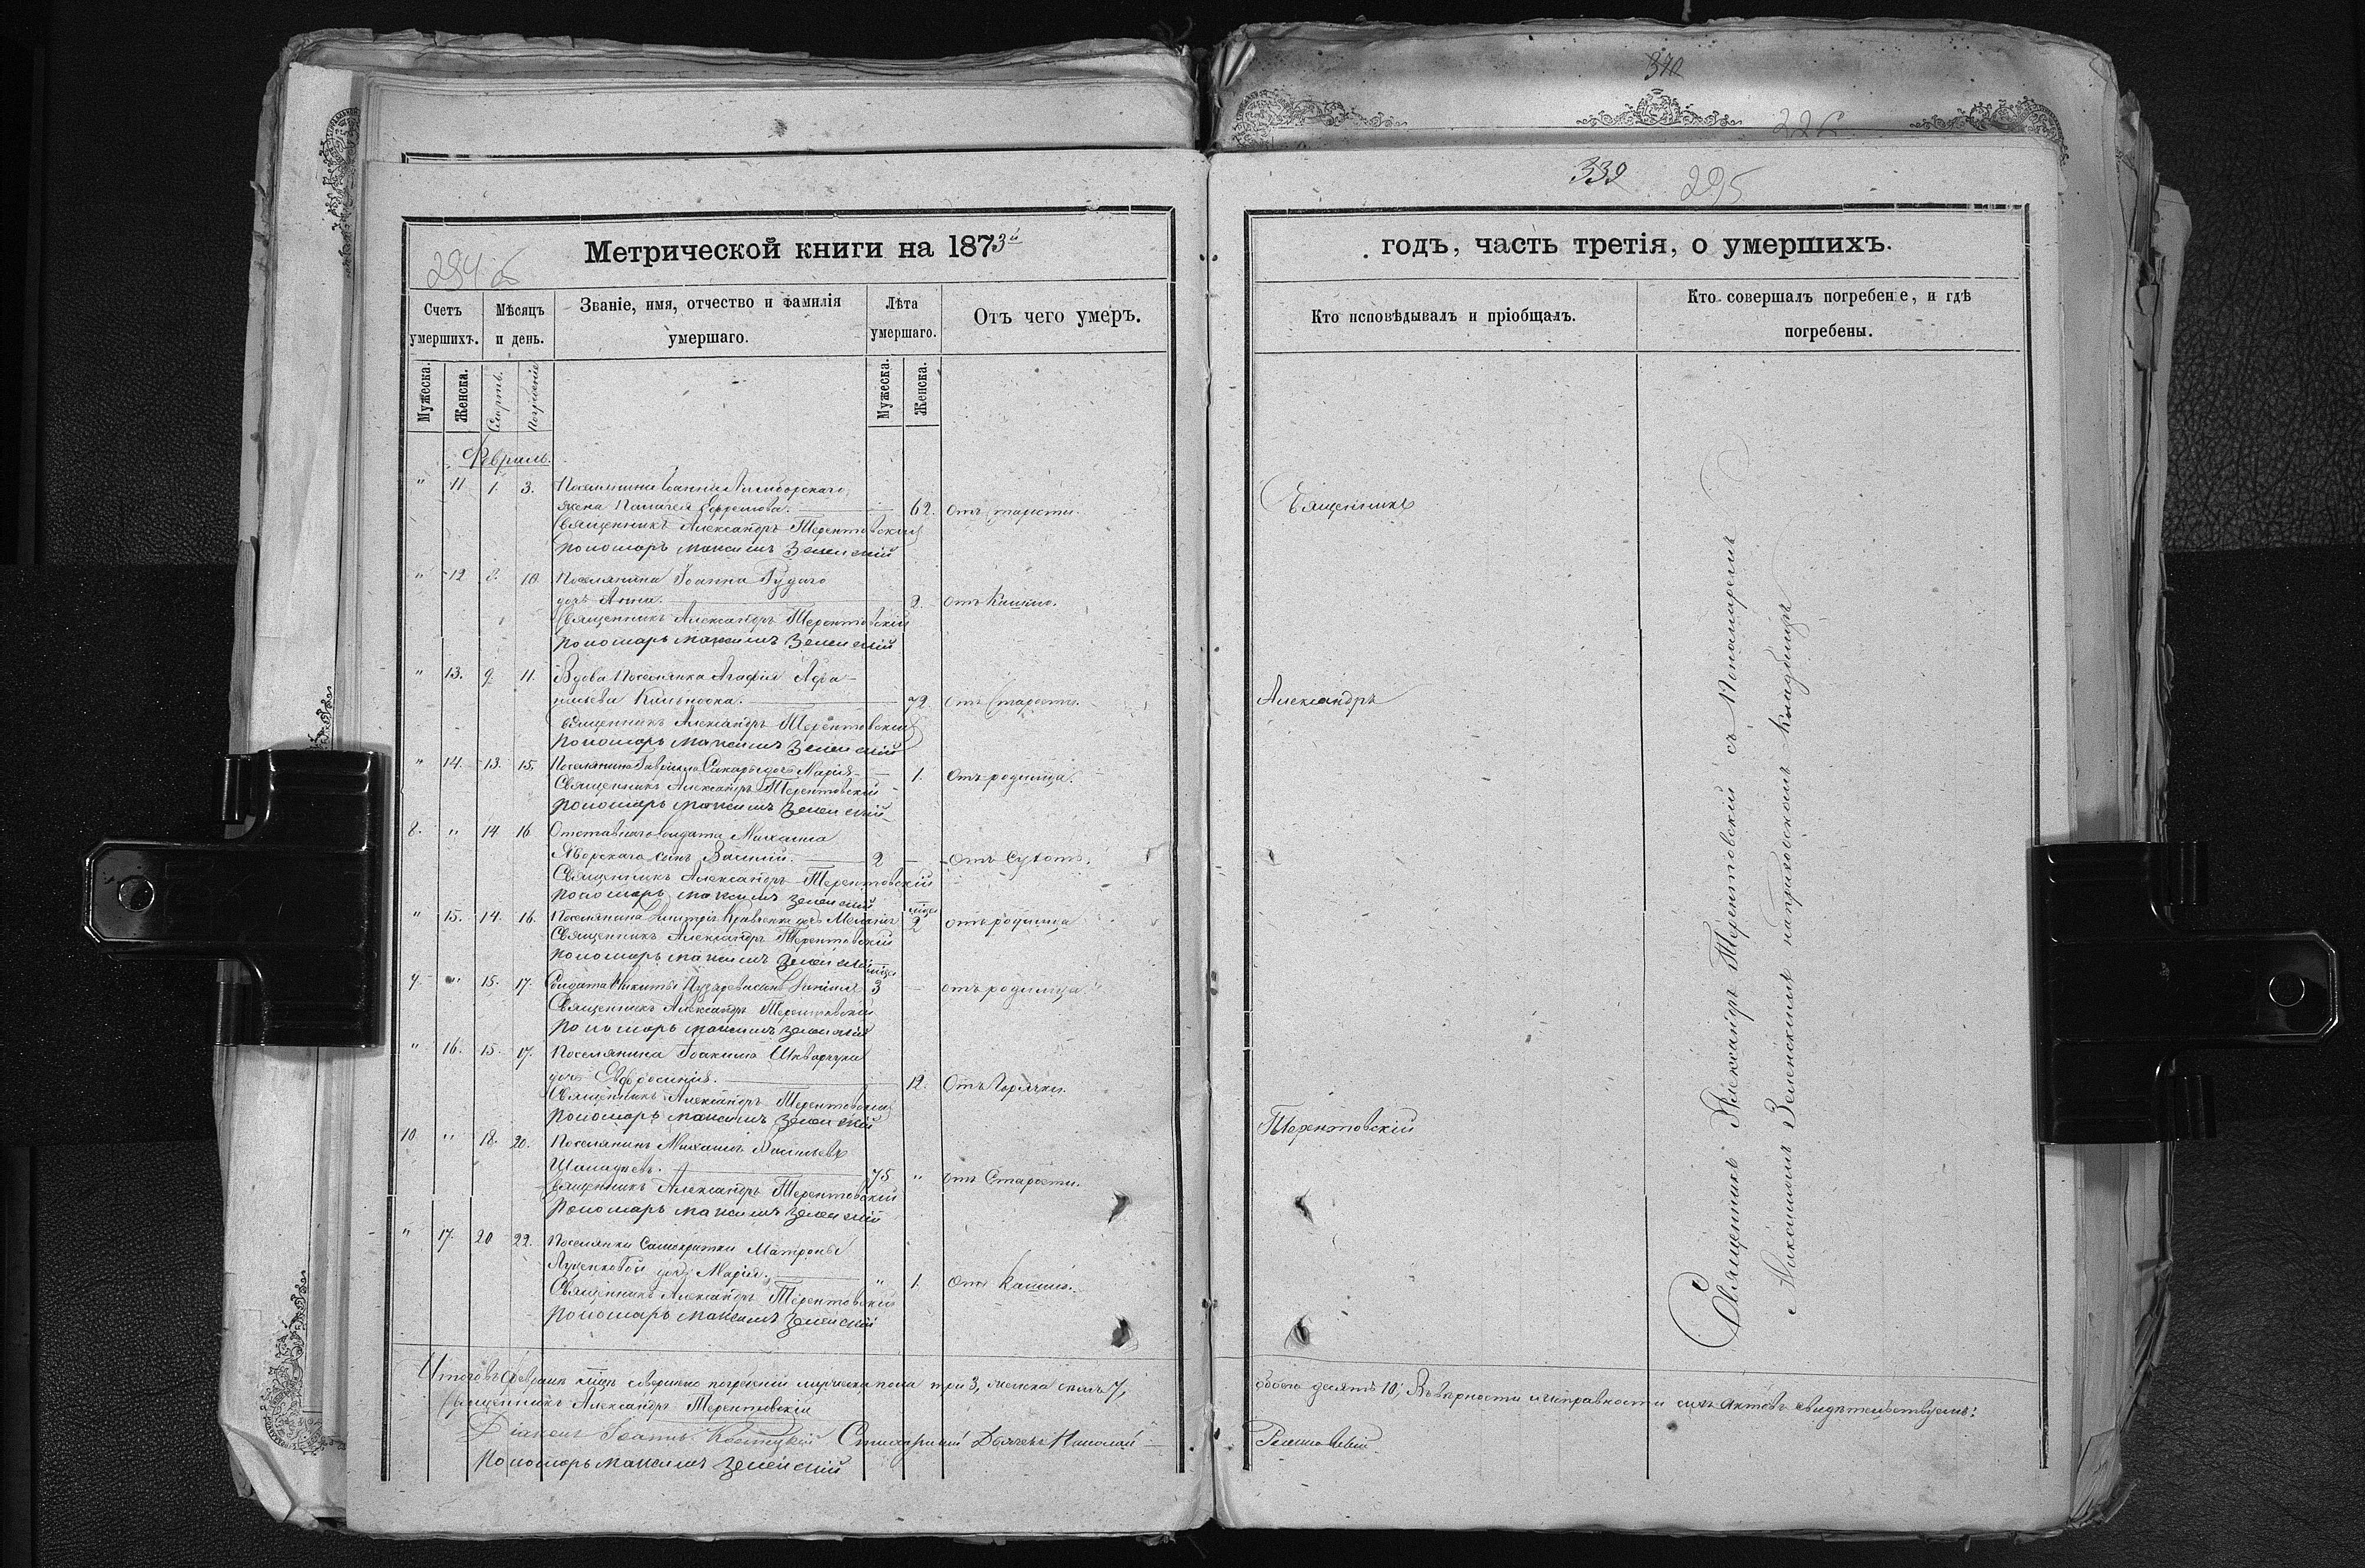 340
226
332 295
294 об
Метрической книги на 1873й
годъ, часть третія, о умершихъ.
Счетъ умершихъ.
Мѣсяцъ и день.
Званіе, имя, отчество и фамилія умершаго.
Лѣта умершаго.
Отъ чего умеръ.
Кто исповѣдывалъ и пріобщалъ.
Кто совершалъ погребеніе, и гдѣ погребены.
Мужеска. Женска. Смерть. Погребеніе Мужеска. Женска.
Февраль.
" 11 1. 3. Поселянина Іоанна
жена Пелагея Ефремова. 62. Отъ старости.
Священникъ Александръ Терентовскій
Пономарь Максимъ Зеленскій
" 12 8. 10. Поселянина Іоанна Рудаго
дочь Анна. 2. Отъ Кашлю.
Священникъ Александръ Терентовскій
Пономарь Максимъ Зеленскій
" 13. 9. 11. Вдова Поселянка Агафія Афа-
насьева 72 Отъ Старости.
Священникъ Александръ Терентовскій
Пономарь Максимъ Зеленскій
" 14. 13. 15. Поселянина Гавріила дочь Марія 1. Отъ родимца.
Священникъ Александръ Терентовскій
Пономарь Максимъ Зеленскій
8. " 14 16 Отставнаго солдата Михаила
Яворскаго сынъ Василій. 2 Отъ Сухотъ.
Священникъ Александръ Терентовскій
Пономарь Максимъ Зеленскій
" 15. 14. 16. Поселянина Димитрія Кравченка дочь Меланія мцы 2 отъ родимца
Священникъ Александръ Терентовскій
Пономарь Максимъ Зеленскій
9. " 15. 17. Солдата Никиты сынъ мца 3 отъ родимца
Священникъ Александръ Терентовскій
Пономарь Максимъ Зеленскій
" 16. 15. 17. Поселянина Іоакима Шкварчука
дочь Евфросинія. 12. Отъ Горячки.
Священникъ Александръ Терентовскій
Пономарь Максимъ Зеленскій
10. " 18. 20. Поселянинъ Михаилъ Васильевъ
75 " отъ Старости.
Священникъ Александръ Терентовскій
Пономарь Максимъ Зеленскій
" 17. 20 22. Поселянки Матроны
Луценковой дочь Марія. " 1. Отъ Кашлю.
Священникъ Александръ Терентовскій
Пономарь Максимъ Зеленскій
Священникъ
Александръ
Терентовскій
Священникъ Александръ Терентовскій съ Пономаремъ
Максимомъ Зеленскимъ на приходскомъ Кладбищѣ
Итого въ Февралѣ мцѣ совершено погребеній мужеска пола три 3, женска семь 7, обоего десять 10; Въ вѣрности и исправности сихъ актовъ свидѣтельствуемъ:
Священникъ Александръ Терентовскій
Діаконъ Іоаннъ Стихарный Дьячекъ Николай
Пономарь Максимъ Зеленскій